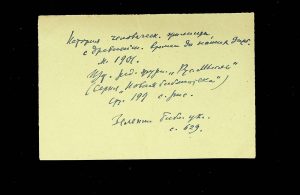 История человеческ. жилища,
с древнейш. времен до наших дней.
М. 1901.
Изд. ред. журн. „Рус. Мысль"
(Серия „Новая библиотека")
Ср. 190 с. рис.
библ. ук.
с. 629.